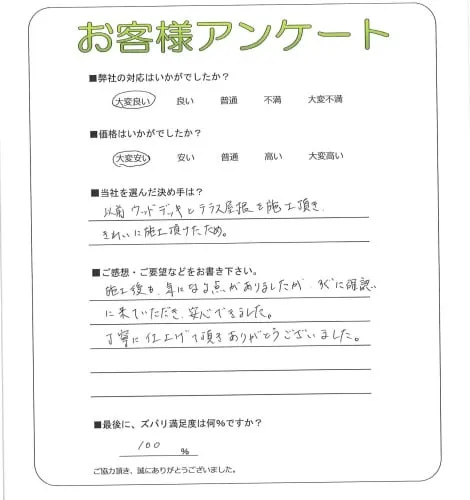 お客様アンケート
■弊社の対応はいかがでしたか？
大変良い 良い 普通 不満 大変不満
■価格はいかがでしたか？
大変安い 安い 普通 高い 大変高い
■当社を選んだ決め手は？
以前ウッドデッキとテラス屋根を施工頂き、
きれいに施工頂けたため。
■ご感想・ご要望などをお書き下さい。
施工後も、気になる点がありましたが、すぐに確認
に来ていただき、安心できました。
丁寧に仕上げて頂きありがとうございました。
■最後に、ズバリ満足度は何％ですか？
100 ％
ご協力頂き、誠にありがとうございました。